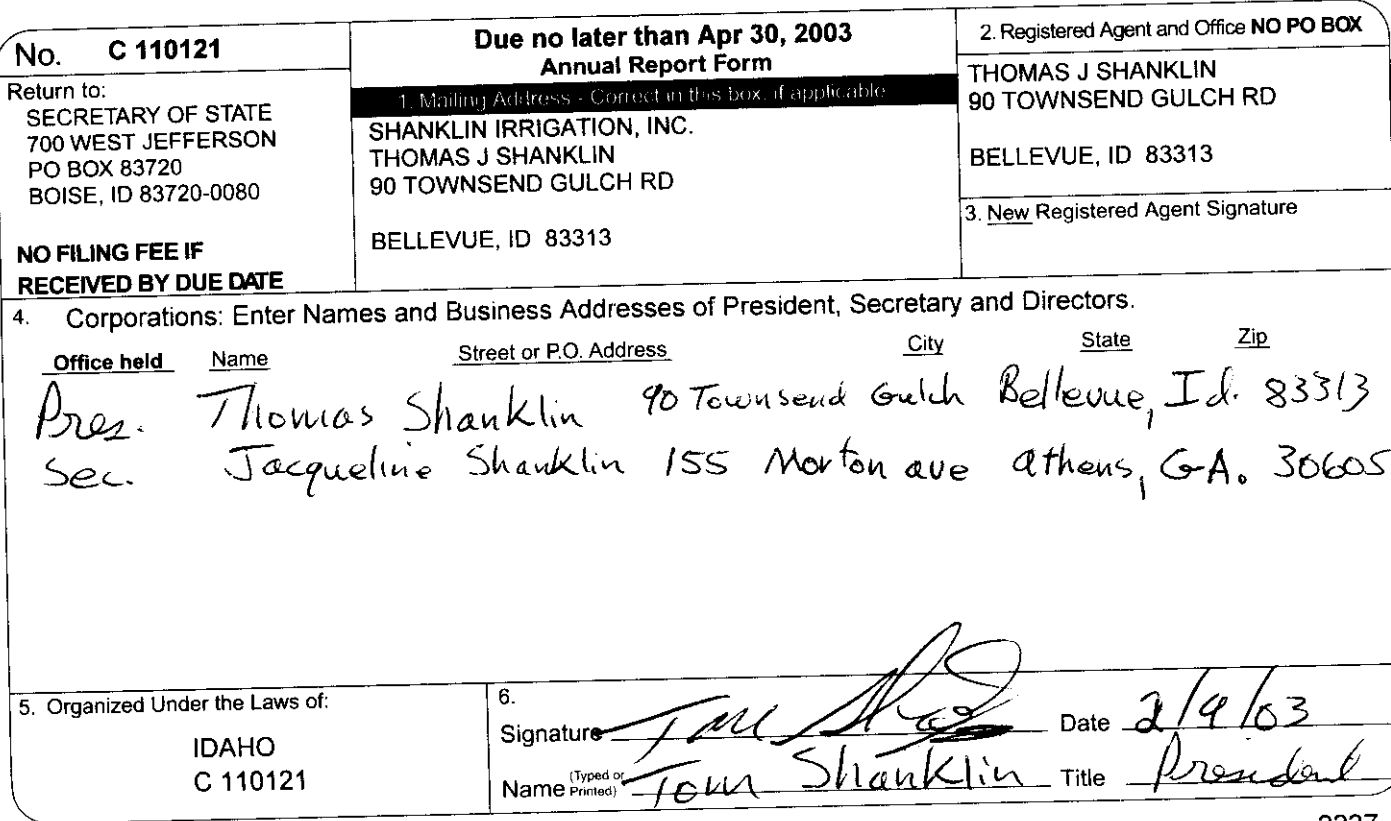 No. C 110121
Return to:
SECRETARY OF STATE
700 WEST JEFFERSON
PO BOX 83720
BOISE, ID 83720-0080
NO FILING FEE IF
RECEIVED BY DUE DATE
Due no later than Apr 30, 2003
Annual Report Form
1. Mailing Address - Correct in this box, if applicable
SHANKLIN IRRIGATION, INC.
THOMAS J SHANKLIN
90 TOWNSEND GULCH RD
BELLEVUE, ID 83313
2. Registered Agent and Office NO PO BOX
THOMAS J SHANKLIN
90 TOWNSEND GULCH RD
BELLEVUE, ID 83313
3. New Registered Agent Signature
4. Corporations: Enter Names and Business Addresses of President, Secretary and Directors.
Office held Name Street or P.O. Address City State Zip
Pres. Thomas Shanklin 90 Townsend Gulch Bellevue, Id. 83313
Sec. Jacqueline Shanklin 155 Morton ave athens, GA. 30605
5. Organized Under the Laws of:
IDAHO
C 110121
6.
Signature Date 2/9/03
Name (Typed or Printed) Tom Shanklin Title President